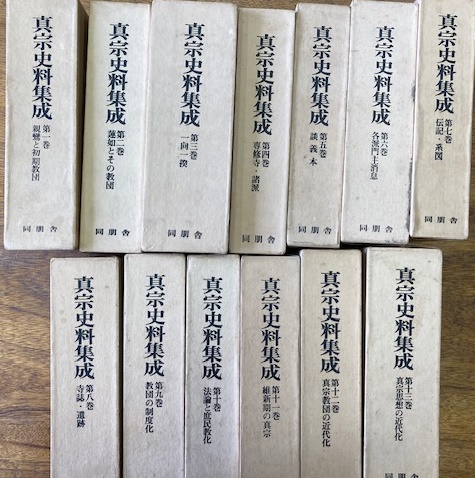 真宗史料集成
第一巻
親鸞と初期教団
同朋舎
真宗史料集成
第二巻
蓮如とその教団
同朋舎
真宗史料集成
第三巻
一向一揆
同朋舎
真宗史料集成
第四巻
専修寺・諸派
同朋舎
真宗史料集成
第五巻
談義本
同朋舎
真宗史料集成
第六巻
各派門主消息
同朋舎
真宗史料集成
第七巻
伝記・系図
同朋舎
真宗史料集成
第八巻
寺誌・遺跡
真宗史料集成
第九巻
教団の制度化
真宗史料集成
第十巻
法論と庶民教化
真宗史料集成
第十一巻
維新期の真宗
真宗史料集成
第十二巻
真宗教団の近代化
真宗史料集成
第十三巻
真宗思想の近代化
同朋舎